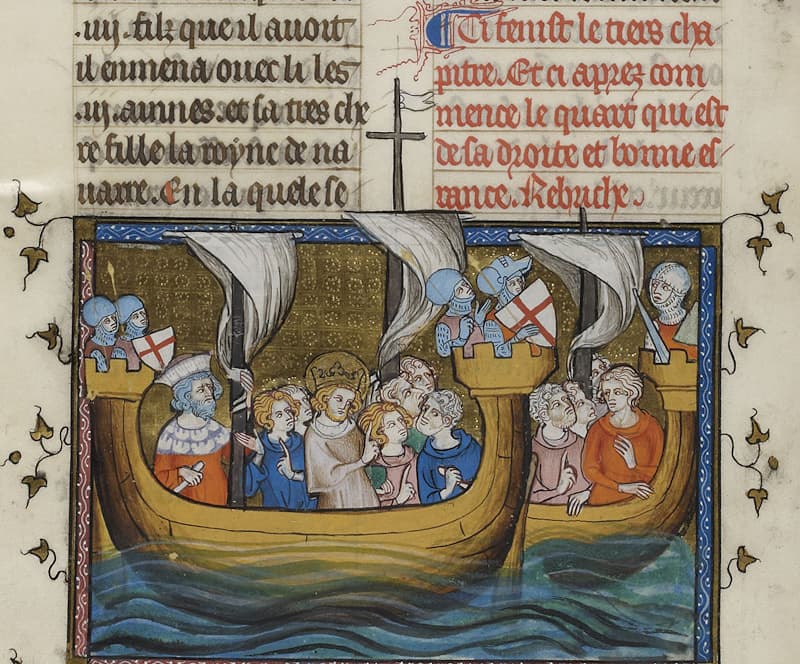 .iiij. filz que il auoit
il enmena ouec li les
.iij. ainnes. et sa tres che
re fille la royne de na
uarre. En la quele se
Ci fenist le tiers cha
pitre. Et ci aprez com
mence le quart qui est
de sa droite et bonne es
rance. Rebriche.